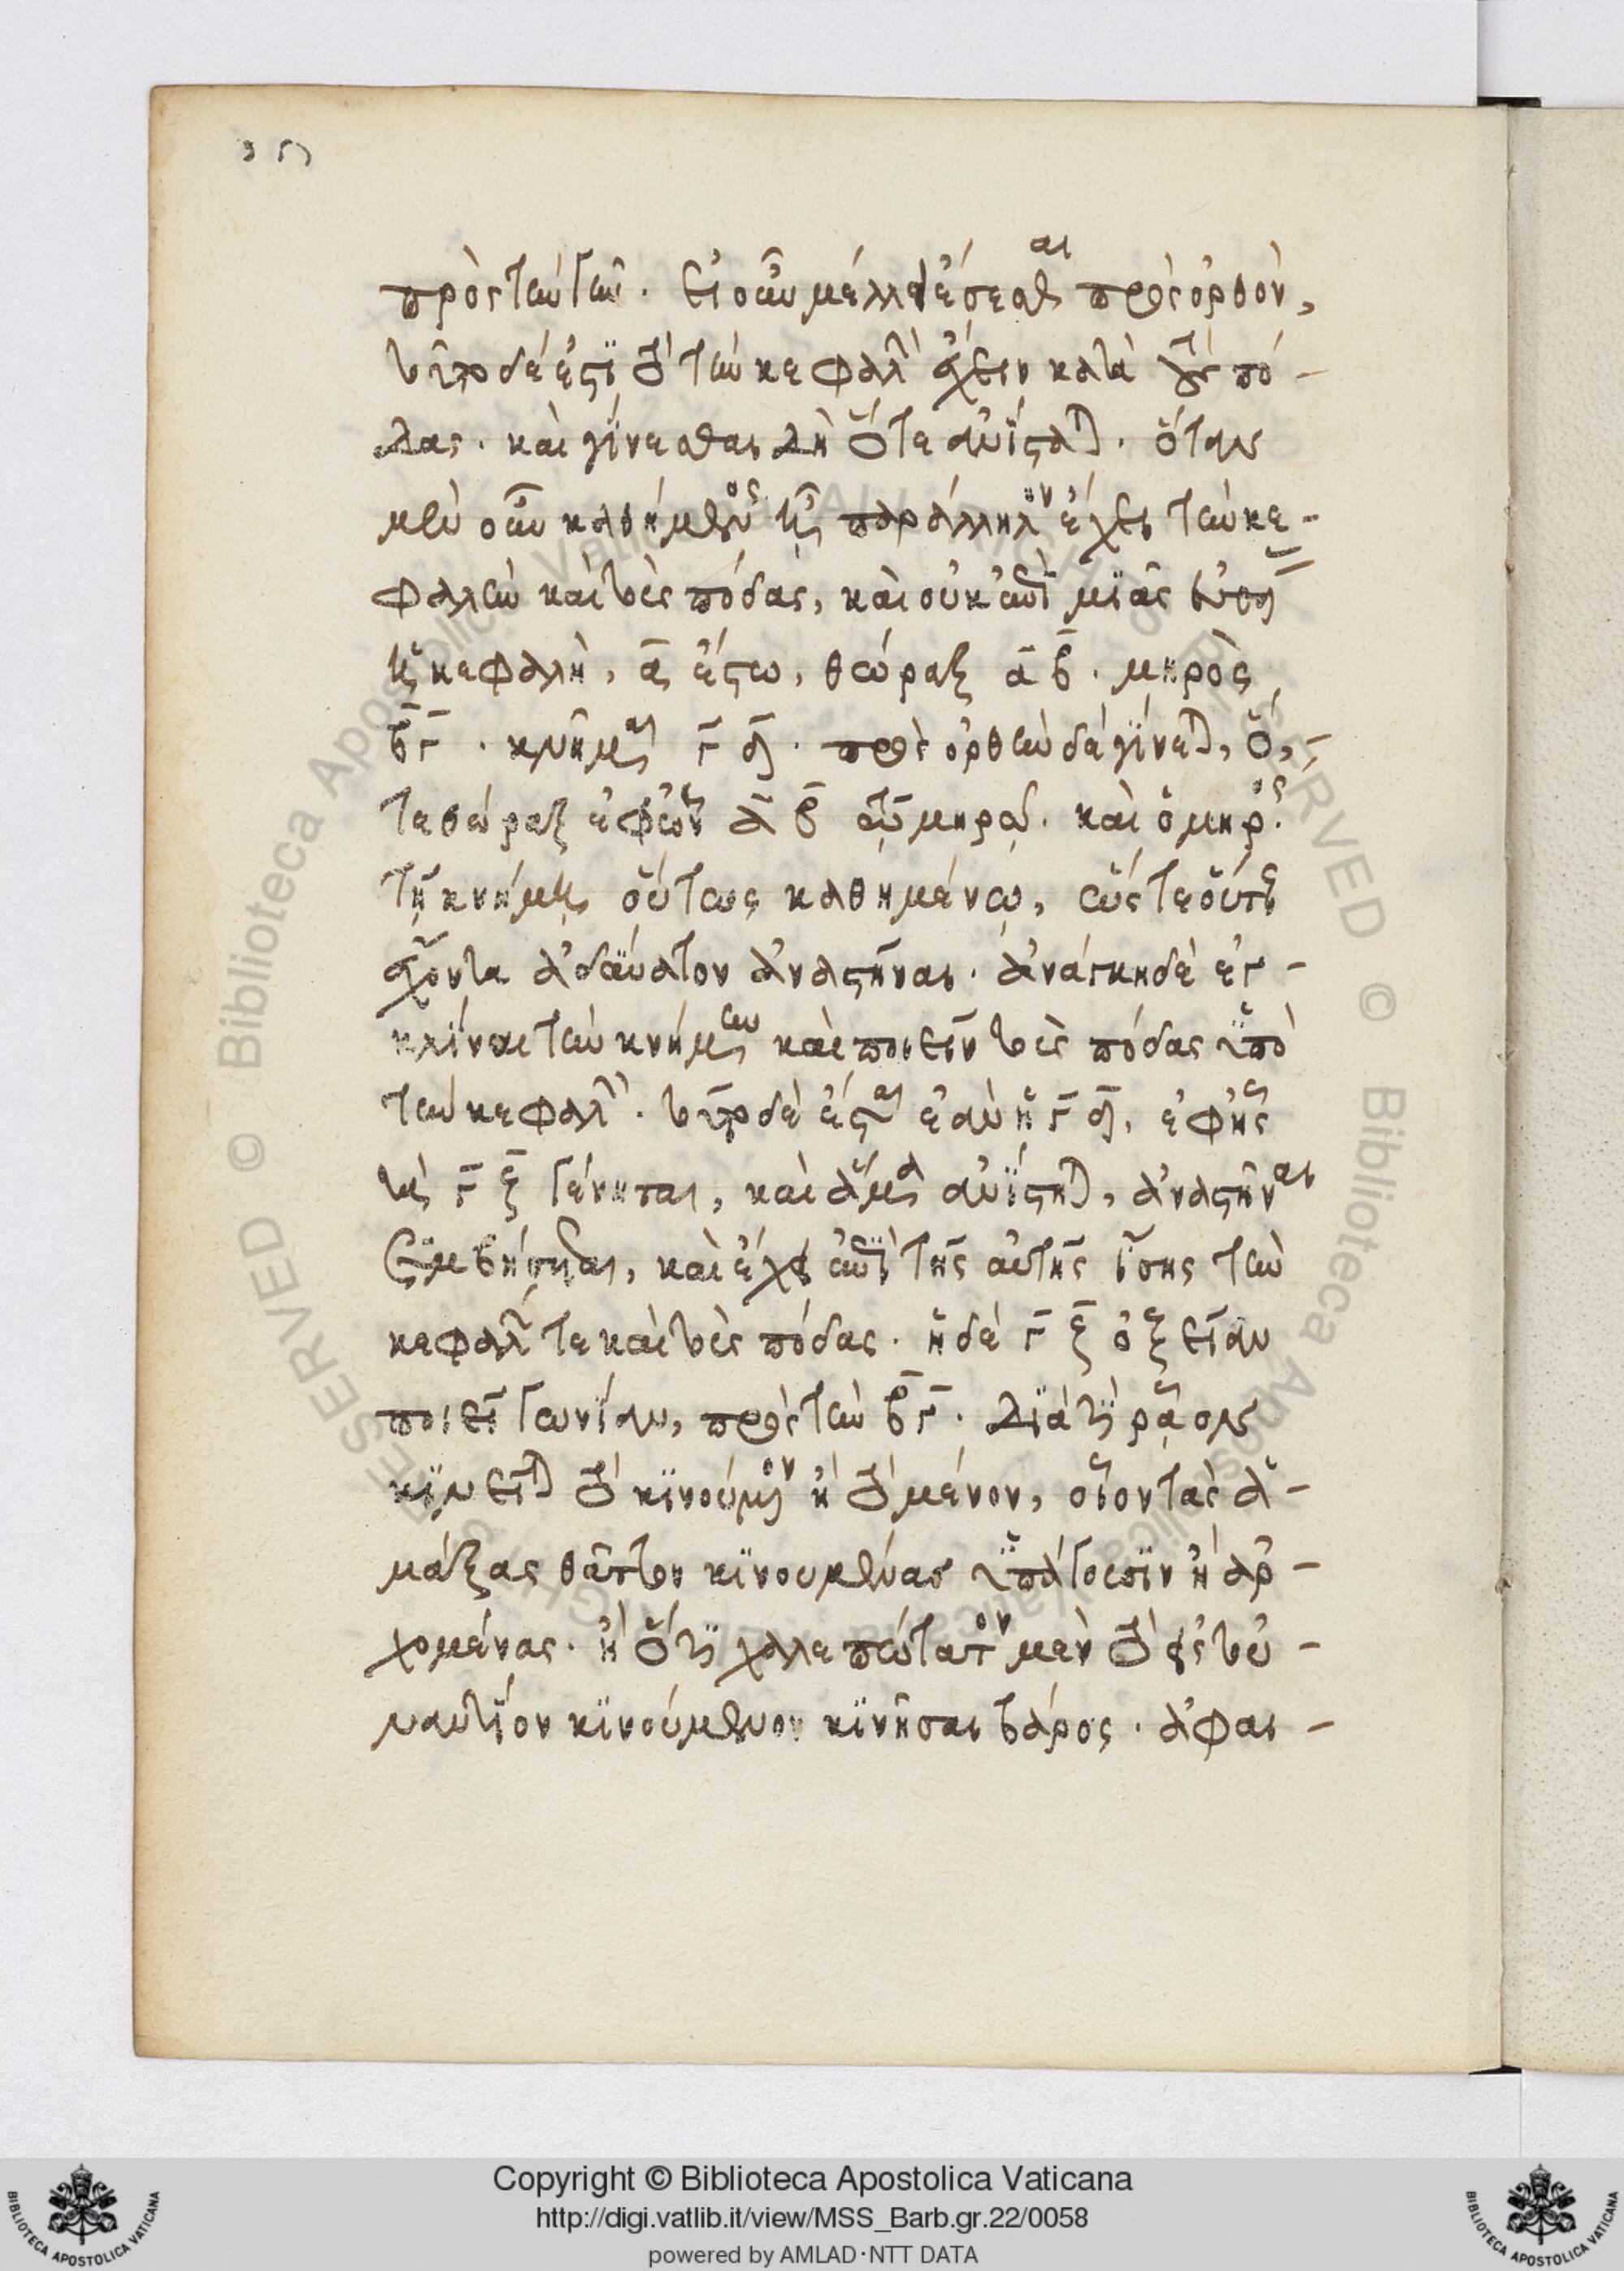 πρὸς τὴν γῆν. εἰ οὖν μέλλει ἔσεσθαι πρὸς ὀρθὸν,
τοῦτο δέ ἐστι τὸ τὴν κεφαλὴν ἔχειν κατὰ τοὺς πό-
δας. καὶ γίνεσθαι δὴ ὅτε ἀνίσταται. ὅταν
μὲν οὖν καθήμενος ᾖ παράλληλον ἔχει τὴν κε-
φαλὴν καὶ τοὺς πόδας, καὶ οὐκ ἐπὶ μιᾶς εὐθείας
ἡ κεφαλὴ, α ἔστω, θώραξ α β. μηρὸς
β γ. κνήμη γ δ. πρὸς ὀρθὴν δὲ γίνεται, ὅ,-
τε θώραξ ἐφ' ὧν α β τῷ μηρῷ. καὶ ὁ μηρὸς
τῇ κνήμῃ οὕτως καθημένῳ, ὥστε οὕτως
ἔχοντα ἀδύνατον ἀναστῆναι. ἀνάγκη δὲ ἐγ-
κλίναι τὴν κνήμην καὶ ποιεῖν τοὺς πόδας ὑπὸ
τὴν κεφαλὴν. τοῦτο δὲ ἔσται ἐὰν ἡ γ δ, ἐφ' ἧς
τὰ γ ξ γένηται, καὶ ἅμα ἀνίσταται, ἀναστῆναι
συμβήσεται, καὶ ἔχει ἐπὶ τῆς αὐτῆς ἴσης τὴν
κεφαλήν τε καὶ τοὺς πόδας. ἡ δὲ γ ξ ὀξεῖαν
ποιεῖ γωνίαν, πρὸς τὴν β γ. διὰ τί ῥᾷον
κινεῖται τὸ κινούμενον ἢ τὸ μένον, οἷον τὰς ἁ-
μάξας θᾶττον κινουμένας ὑπάγουσιν ἢ ἀρ-
χομένας. ἢ ὅτι χαλεπώτατον μὲν τὸ εἰς τοὐ-
ναντίον κινούμενον κινῆσαι βάρος. ἀφαι-
Copyright © Biblioteca Apostolica Vaticana
http://digi.vatlib.it/view/MSS_Barb.gr.22/0058
powered by AMLAD·NTT DATA